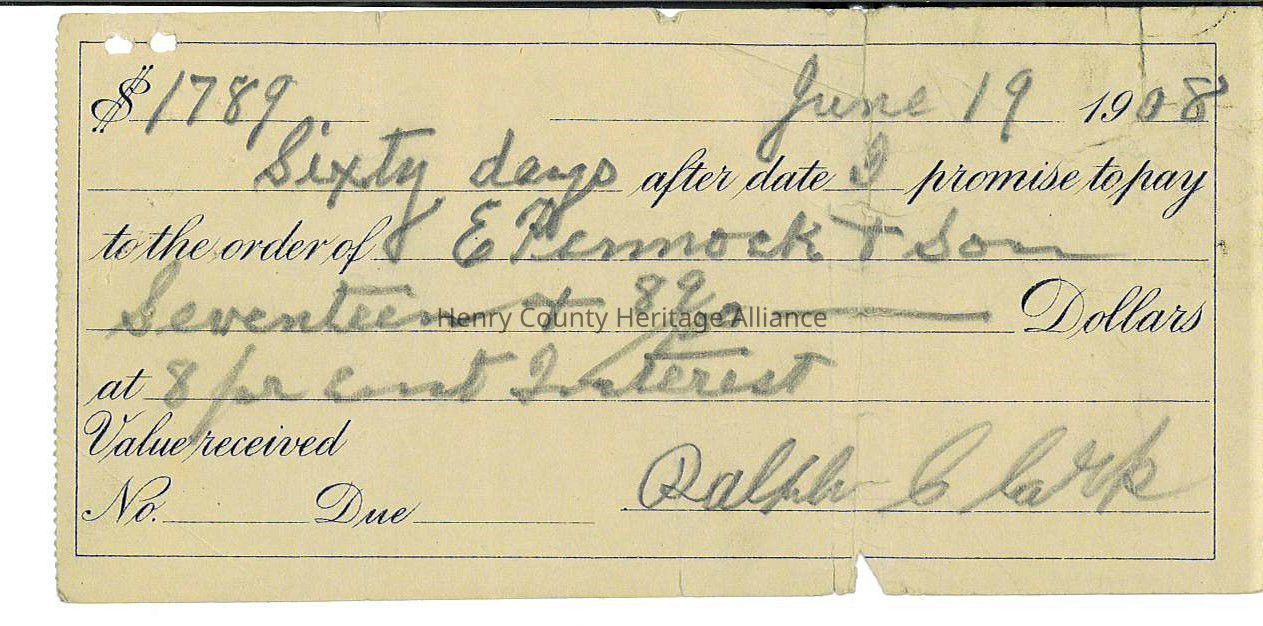 $ 1789 June 19 1908
Sixty days after date I promise to pay
to the order of E Pennock & Son
Seventeen & 89 Dollars
Henry County Heritage Alliance
at 8 pr cent Interest
Value received
No. Due Ralph Clark